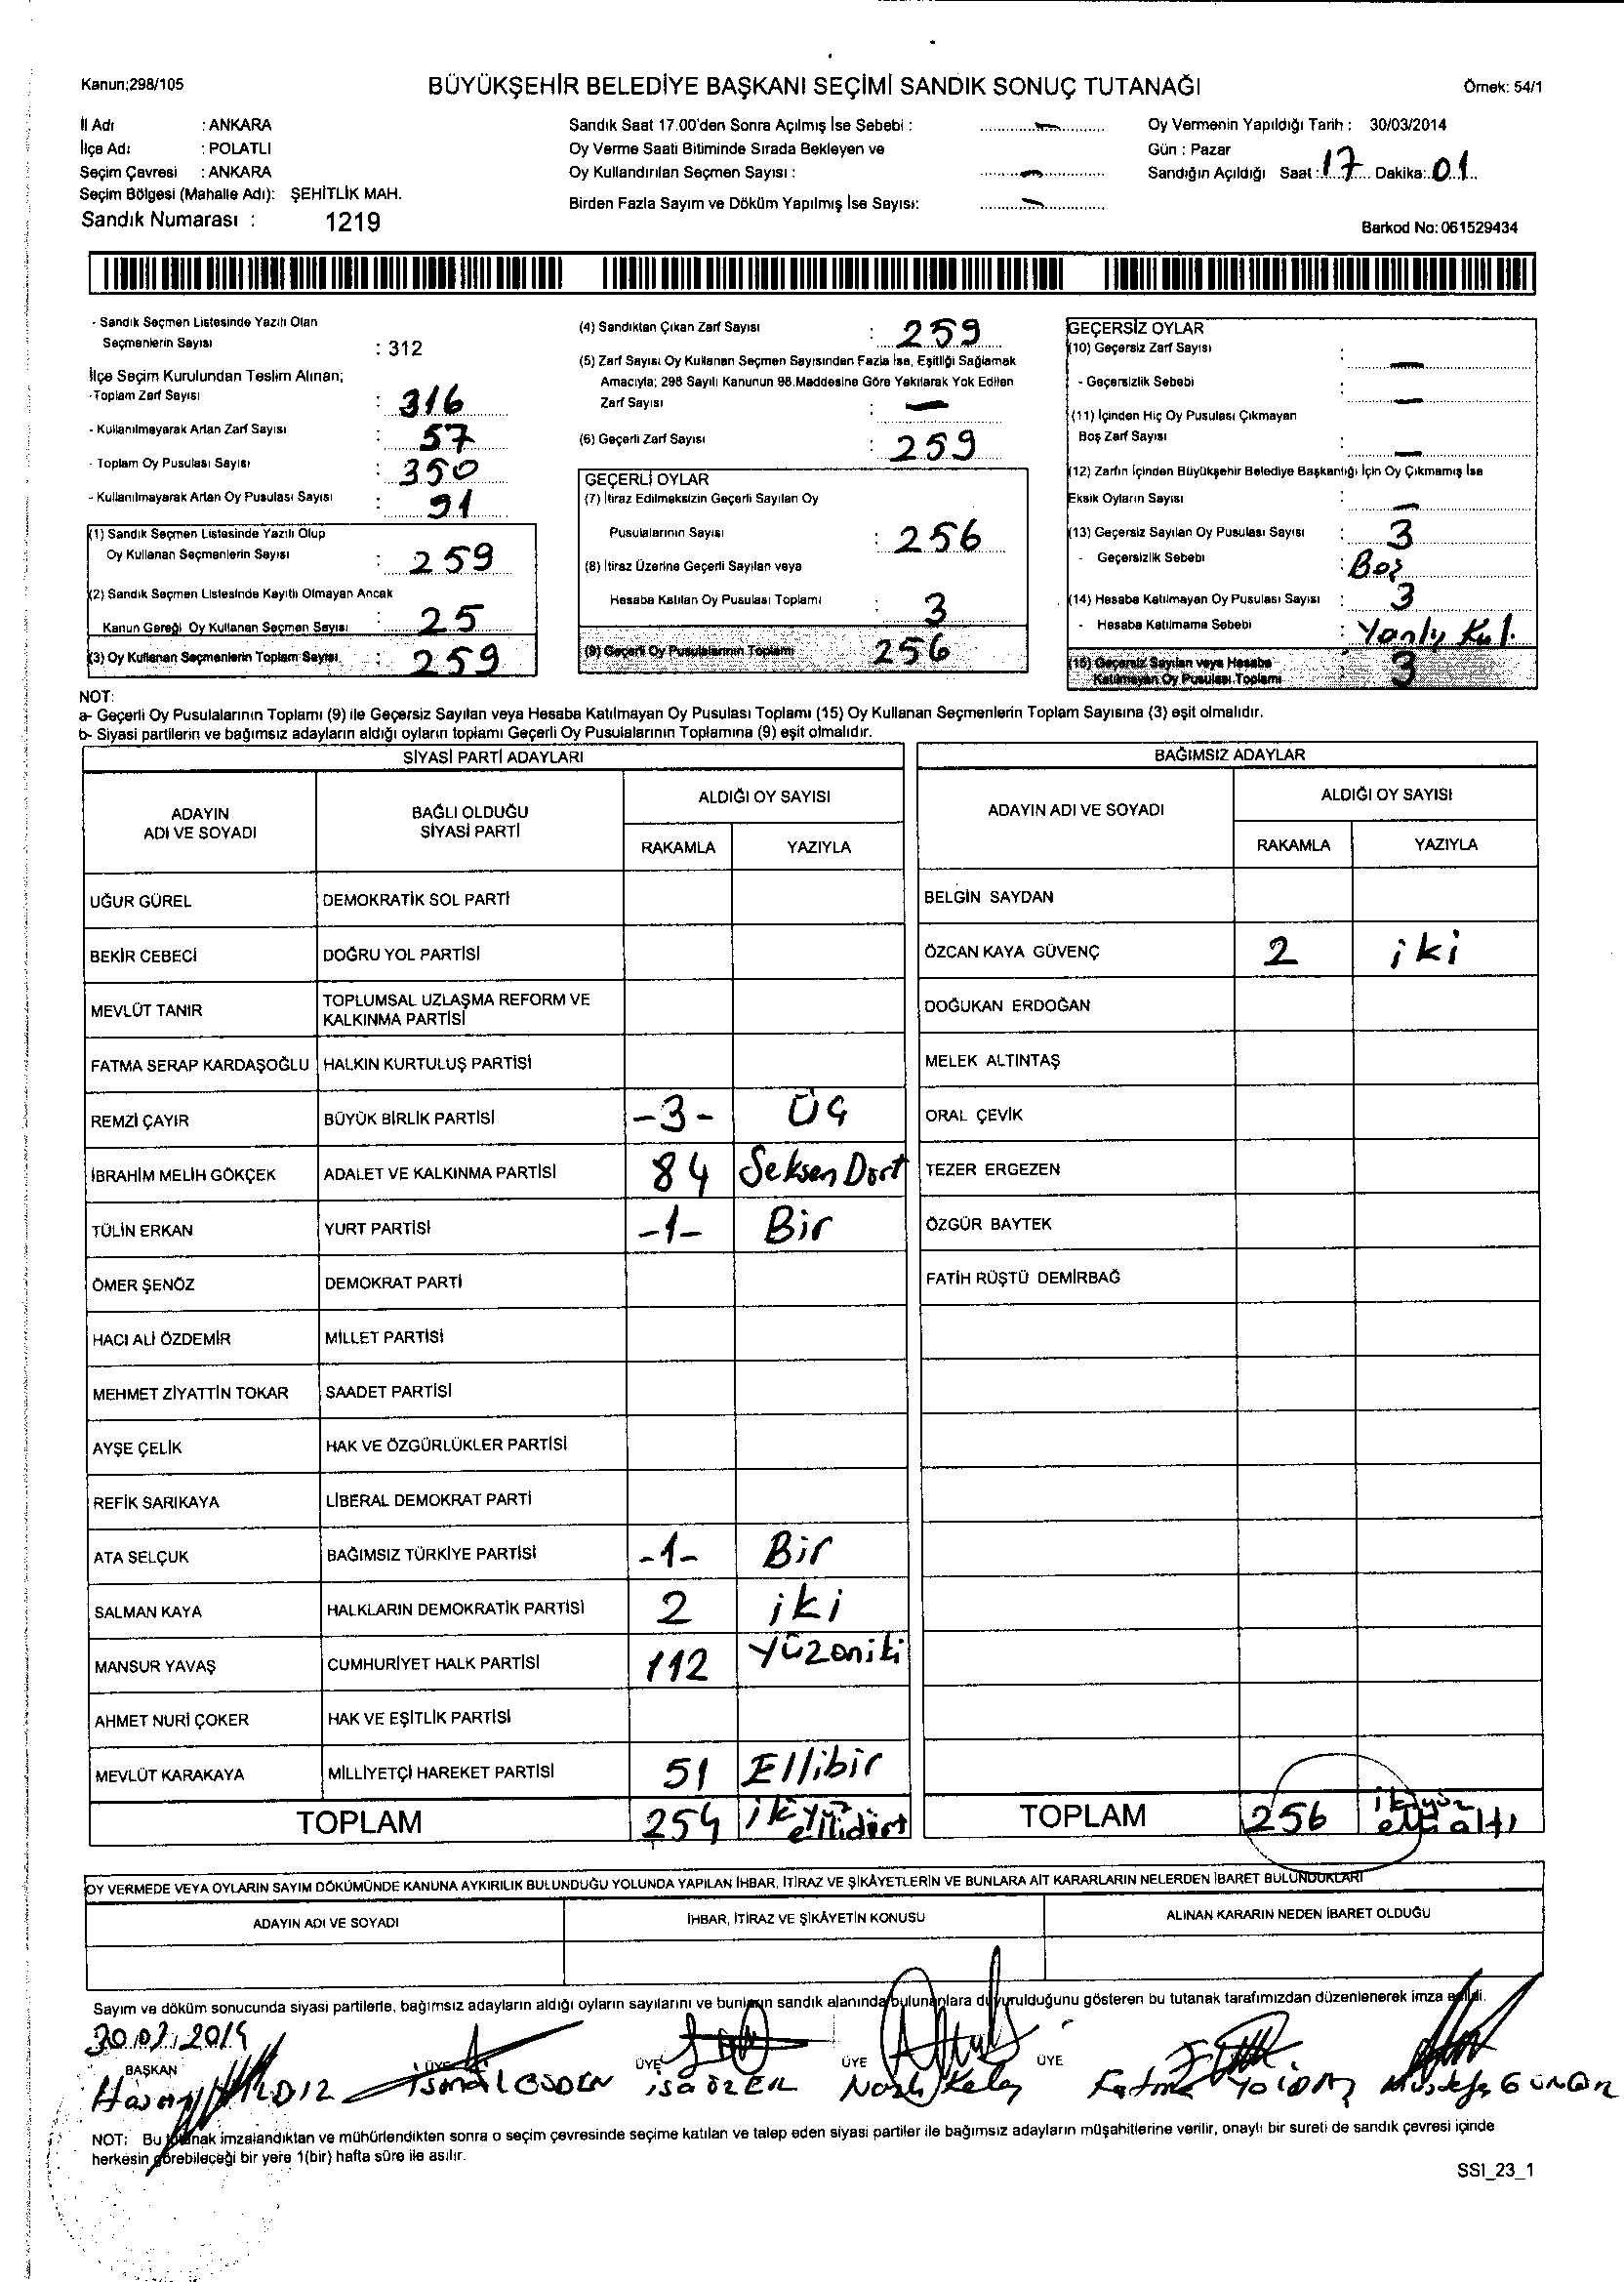 Kanun;298/105
BÜYÜKŞEHİR BELEDİYE BAŞKANI SEÇİMİ SANDIK SONUÇ TUTANAĞI
Örnek: 54/1
İl Adı : ANKARA
İlçe Adı : POLATLI
Seçim Çevresi : ANKARA
Seçim Bölgesi (Mahalle Adı): ŞEHİTLİK MAH.
Sandık Numarası : 1219
Sandık Saat 17.00'den Sonra Açılmış İse Sebebi : —
Oy Verme Saati Bitiminde Sırada Bekleyen ve
Oy Kullandırılan Seçmen Sayısı : —
Birden Fazla Sayım ve Döküm Yapılmış İse Sayısı: —
Oy Vermenin Yapıldığı Tarih : 30/03/2014
Gün : Pazar
Sandığın Açıldığı Saat : 17 Dakika: 01
Barkod No: 061529434
- Sandık Seçmen Listesinde Yazılı Olan
Seçmenlerin Sayısı : 312
İlçe Seçim Kurulundan Teslim Alınan;
-Toplam Zarf Sayısı : 316
- Kullanılmayarak Artan Zarf Sayısı : 57
- Toplam Oy Pusulası Sayısı : 350
- Kullanılmayarak Artan Oy Pusulası Sayısı : 91
(1) Sandık Seçmen Listesinde Yazılı Olup
Oy Kullanan Seçmenlerin Sayısı : 259
(2) Sandık Seçmen Listesinde Kayıtlı Olmayan Ancak
Kanun Gereği Oy Kullanan Seçmen Sayısı : 25
(3) Oy Kullanan Seçmenlerin Toplam Sayısı : 259
(4) Sandıktan Çıkan Zarf Sayısı : 259
(5) Zarf Sayısı Oy Kullanan Seçmen Sayısından Fazla İse, Eşitliği Sağlamak
Amacıyla; 298 Sayılı Kanunun 98.Maddesine Göre Yakılarak Yok Edilen
Zarf Sayısı : —
(6) Geçerli Zarf Sayısı : 259
GEÇERLİ OYLAR
(7) İtiraz Edilmeksizin Geçerli Sayılan Oy
Pusulalarının Sayısı : 256
(8) İtiraz Üzerine Geçerli Sayılan veya
Hesaba Katılan Oy Pusulası Toplamı : 3
(9) Geçerli Oy Pusulalarının Toplamı 256
GEÇERSİZ OYLAR
(10) Geçersiz Zarf Sayısı : —
- Geçersizlik Sebebi : —
(11) İçinden Hiç Oy Pusulası Çıkmayan
Boş Zarf Sayısı : —
(12) Zarfın İçinden Büyükşehir Belediye Başkanlığı İçin Oy Çıkmamış İse
Eksik Oyların Sayısı : —
(13) Geçersiz Sayılan Oy Pusulası Sayısı : 3
- Geçersizlik Sebebi : Boş
(14) Hesaba Katılmayan Oy Pusulası Sayısı : 3
- Hesaba Katılmama Sebebi : Yanlış Kul.
(15) Geçersiz Sayılan veya Hesaba
Katılmayan Oy Pusulası Toplamı : 3
NOT:
a- Geçerli Oy Pusulalarının Toplamı (9) ile Geçersiz Sayılan veya Hesaba Katılmayan Oy Pusulası Toplamı (15) Oy Kullanan Seçmenlerin Toplam Sayısına (3) eşit olmalıdır.
b- Siyasi partilerin ve bağımsız adayların aldığı oyların toplamı Geçerli Oy Pusulalarının Toplamına (9) eşit olmalıdır.
SİYASİ PARTİ ADAYLARI
ADAYIN
ADI VE SOYADI
BAĞLI OLDUĞU
SİYASİ PARTİ
ALDIĞI OY SAYISI
RAKAMLA YAZIYLA
UĞUR GÜREL DEMOKRATİK SOL PARTİ
BEKİR CEBECİ DOĞRU YOL PARTİSİ
MEVLÜT TANIR TOPLUMSAL UZLAŞMA REFORM VE
KALKINMA PARTİSİ
FATMA SERAP KARDAŞOĞLU HALKIN KURTULUŞ PARTİSİ
REMZİ ÇAYIR BÜYÜK BİRLİK PARTİSİ -3- ÜÇ
İBRAHİM MELİH GÖKÇEK ADALET VE KALKINMA PARTİSİ 84 Seksen Dört
TÜLİN ERKAN YURT PARTİSİ -1- Bir
ÖMER ŞENÖZ DEMOKRAT PARTİ
HACI ALİ ÖZDEMİR MİLLET PARTİSİ
MEHMET ZİYATTİN TOKAR SAADET PARTİSİ
AYŞE ÇELİK HAK VE ÖZGÜRLÜKLER PARTİSİ
REFİK SARIKAYA LİBERAL DEMOKRAT PARTİ
ATA SELÇUK BAĞIMSIZ TÜRKİYE PARTİSİ -1- Bir
SALMAN KAYA HALKLARIN DEMOKRATİK PARTİSİ 2 iki
MANSUR YAVAŞ CUMHURİYET HALK PARTİSİ 112 Yüzoniki
AHMET NURİ ÇOKER HAK VE EŞİTLİK PARTİSİ
MEVLÜT KARAKAYA MİLLİYETÇİ HAREKET PARTİSİ 51 Ellibir
TOPLAM 254 ikiyüz
ellidört
BAĞIMSIZ ADAYLAR
ADAYIN ADI VE SOYADI
ALDIĞI OY SAYISI
RAKAMLA YAZIYLA
BELGİN SAYDAN
ÖZCAN KAYA GÜVENÇ 2 iki
DOĞUKAN ERDOĞAN
MELEK ALTINTAŞ
ORAL ÇEVİK
TEZER ERGEZEN
ÖZGÜR BAYTEK
FATİH RÜŞTÜ DEMİRBAĞ
TOPLAM 256 ikiyüz
elli altı
OY VERMEDE VEYA OYLARIN SAYIM DÖKÜMÜNDE KANUNA AYKIRILIK BULUNDUĞU YOLUNDA YAPILAN İHBAR, İTİRAZ VE ŞİKÂYETLERİN VE BUNLARA AİT KARARLARIN NELERDEN İBARET BULUNDUKLARI
ADAYIN ADI VE SOYADI İHBAR, İTİRAZ VE ŞİKÂYETİN KONUSU ALINAN KARARIN NEDEN İBARET OLDUĞU
Sayım ve döküm sonucunda siyasi partilerle, bağımsız adayların aldığı oyların sayılarını ve bunların sandık alanında bulunanlara duyurulduğunu gösteren bu tutanak tarafımızdan düzenlenerek imza edildi.
30.03.2014
BAŞKAN ÜYE ÜYE ÜYE ÜYE
Hasan YILDIZ İsmail isa özER Nazlı Keleş Fatma Mustafa
NOT: Bu tutanak imzalandıktan ve mühürlendikten sonra o seçim çevresinde seçime katılan ve talep eden siyasi partiler ile bağımsız adayların müşahitlerine verilir, onaylı bir sureti de sandık çevresi içinde
herkesin görebileceği bir yere 1(bir) hafta süre ile asılır.
SSI_23_1